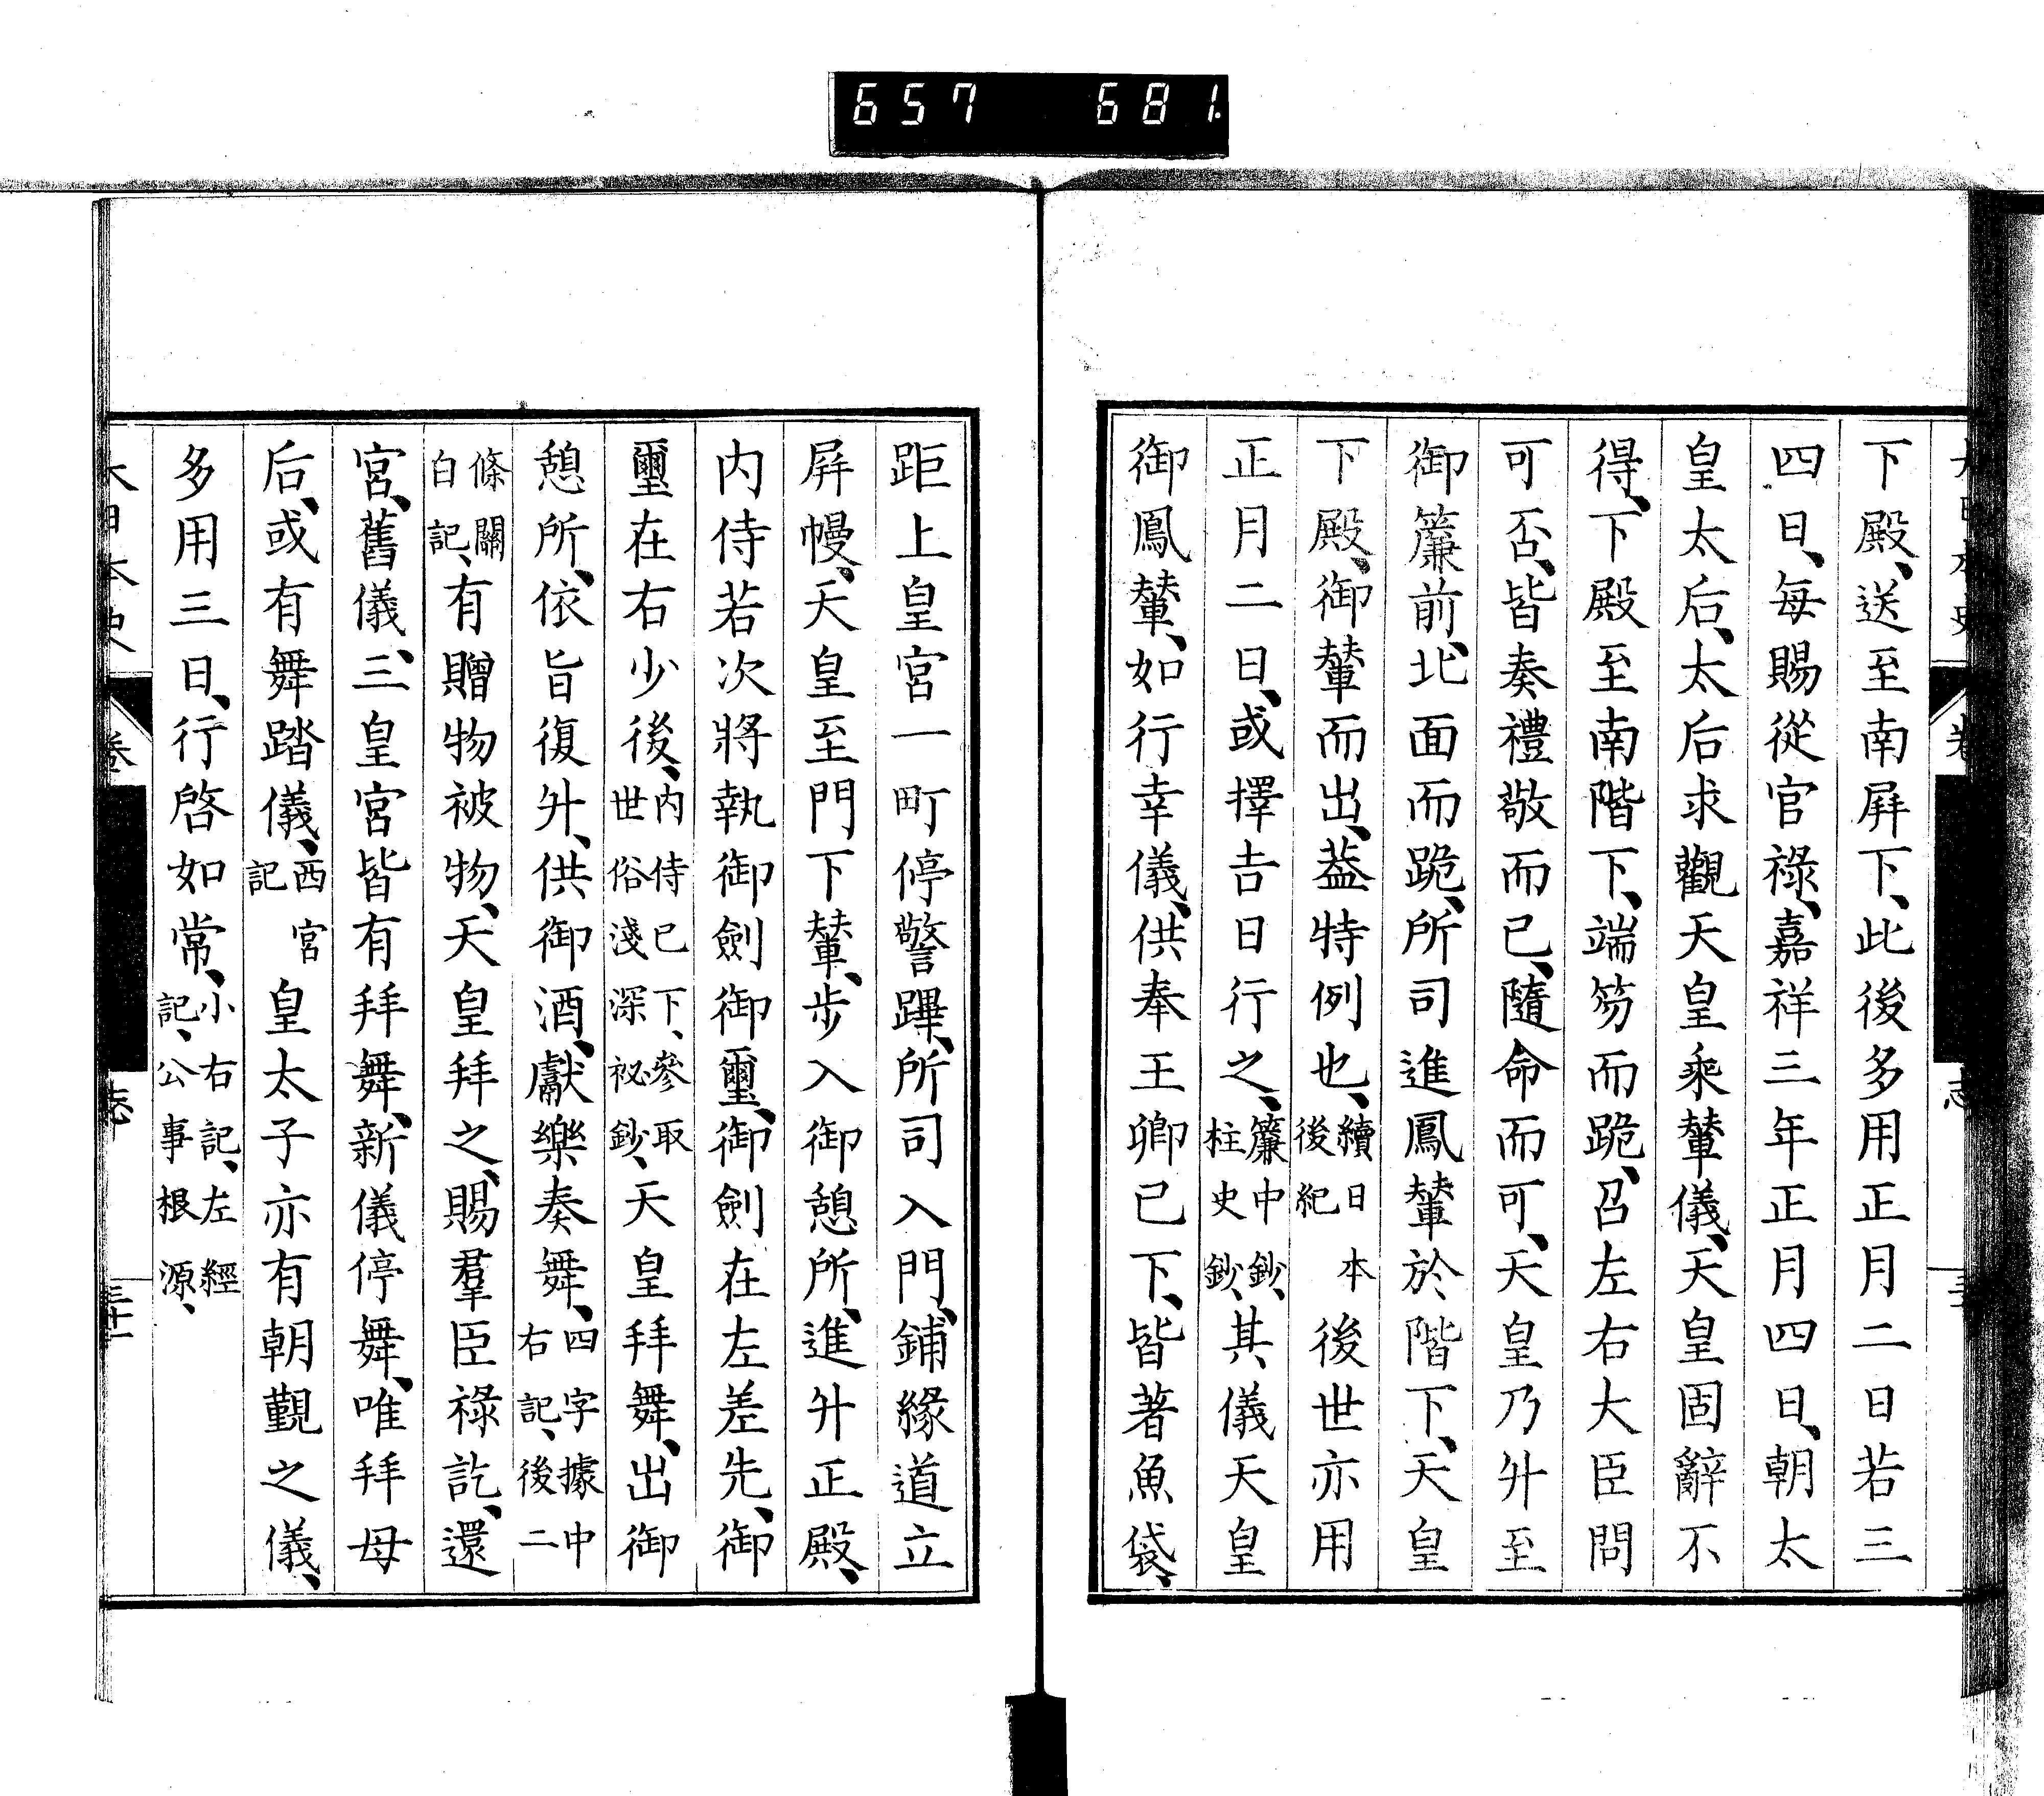 657 681.
下殿、送至南屛下、此後多用正月二日若三
四日、每賜從官祿、嘉祥三年正月四日、朝太
皇太后、太后求觀天皇乘輦儀、天皇固辭不
得、下殿至南階下、端笏而跪、召左右大臣問
可否、皆奏禮敬而已、隨命而可、天皇乃升至
御簾前、北面而跪、所司進鳳輦於階下、天皇
下殿、御輦而出、葢特例也、續日本後紀後世亦用
正月二日、或擇吉日行之、簾中鈔、柱史鈔、其儀天皇
御鳳輦、如行幸儀、供奉王卿已下、皆著魚袋、
距上皇宮一町停警蹕、所司入門、鋪緣道立
屛幔、天皇至門下輦、步入御憩所、進升正殿、
內侍若次將執御劍御璽、御劍在左差先、御
璽在右少後、內侍已下、參取世俗淺深祕鈔、天皇拜舞、出御
憩所、依旨復升、供御酒、獻樂奏舞、四字據中右記、後二
條關白記、有贈物被物、天皇拜之、賜羣臣祿訖、還
宮、舊儀、三皇宮皆有拜舞、新儀停舞、唯拜母
后、或有舞踏儀、西宮記皇太子亦有朝覲之儀、
多用三日、行啓如常、小右記、左經記、公事根源、
大日本史 卷 志